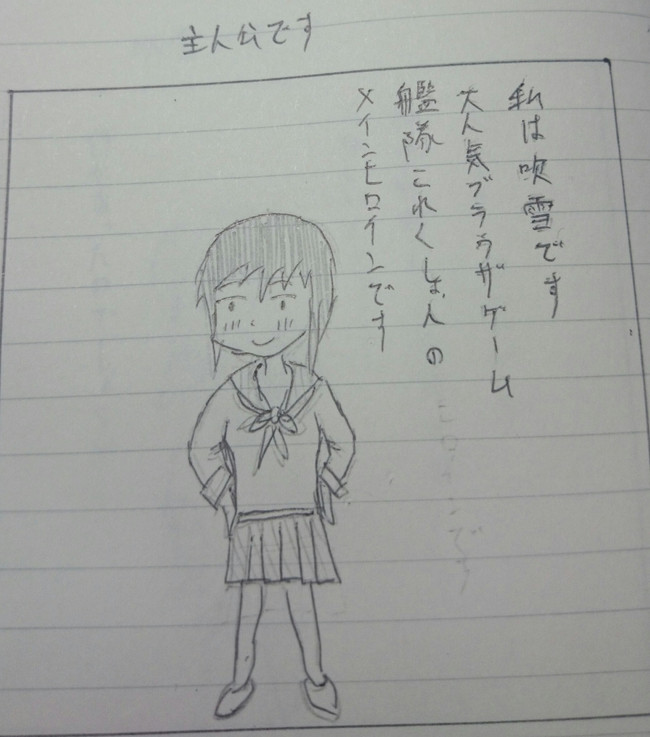 主人公です
私は吹雪です
大人気ブラウザゲーム
艦隊これくしょんの
メインヒロインです